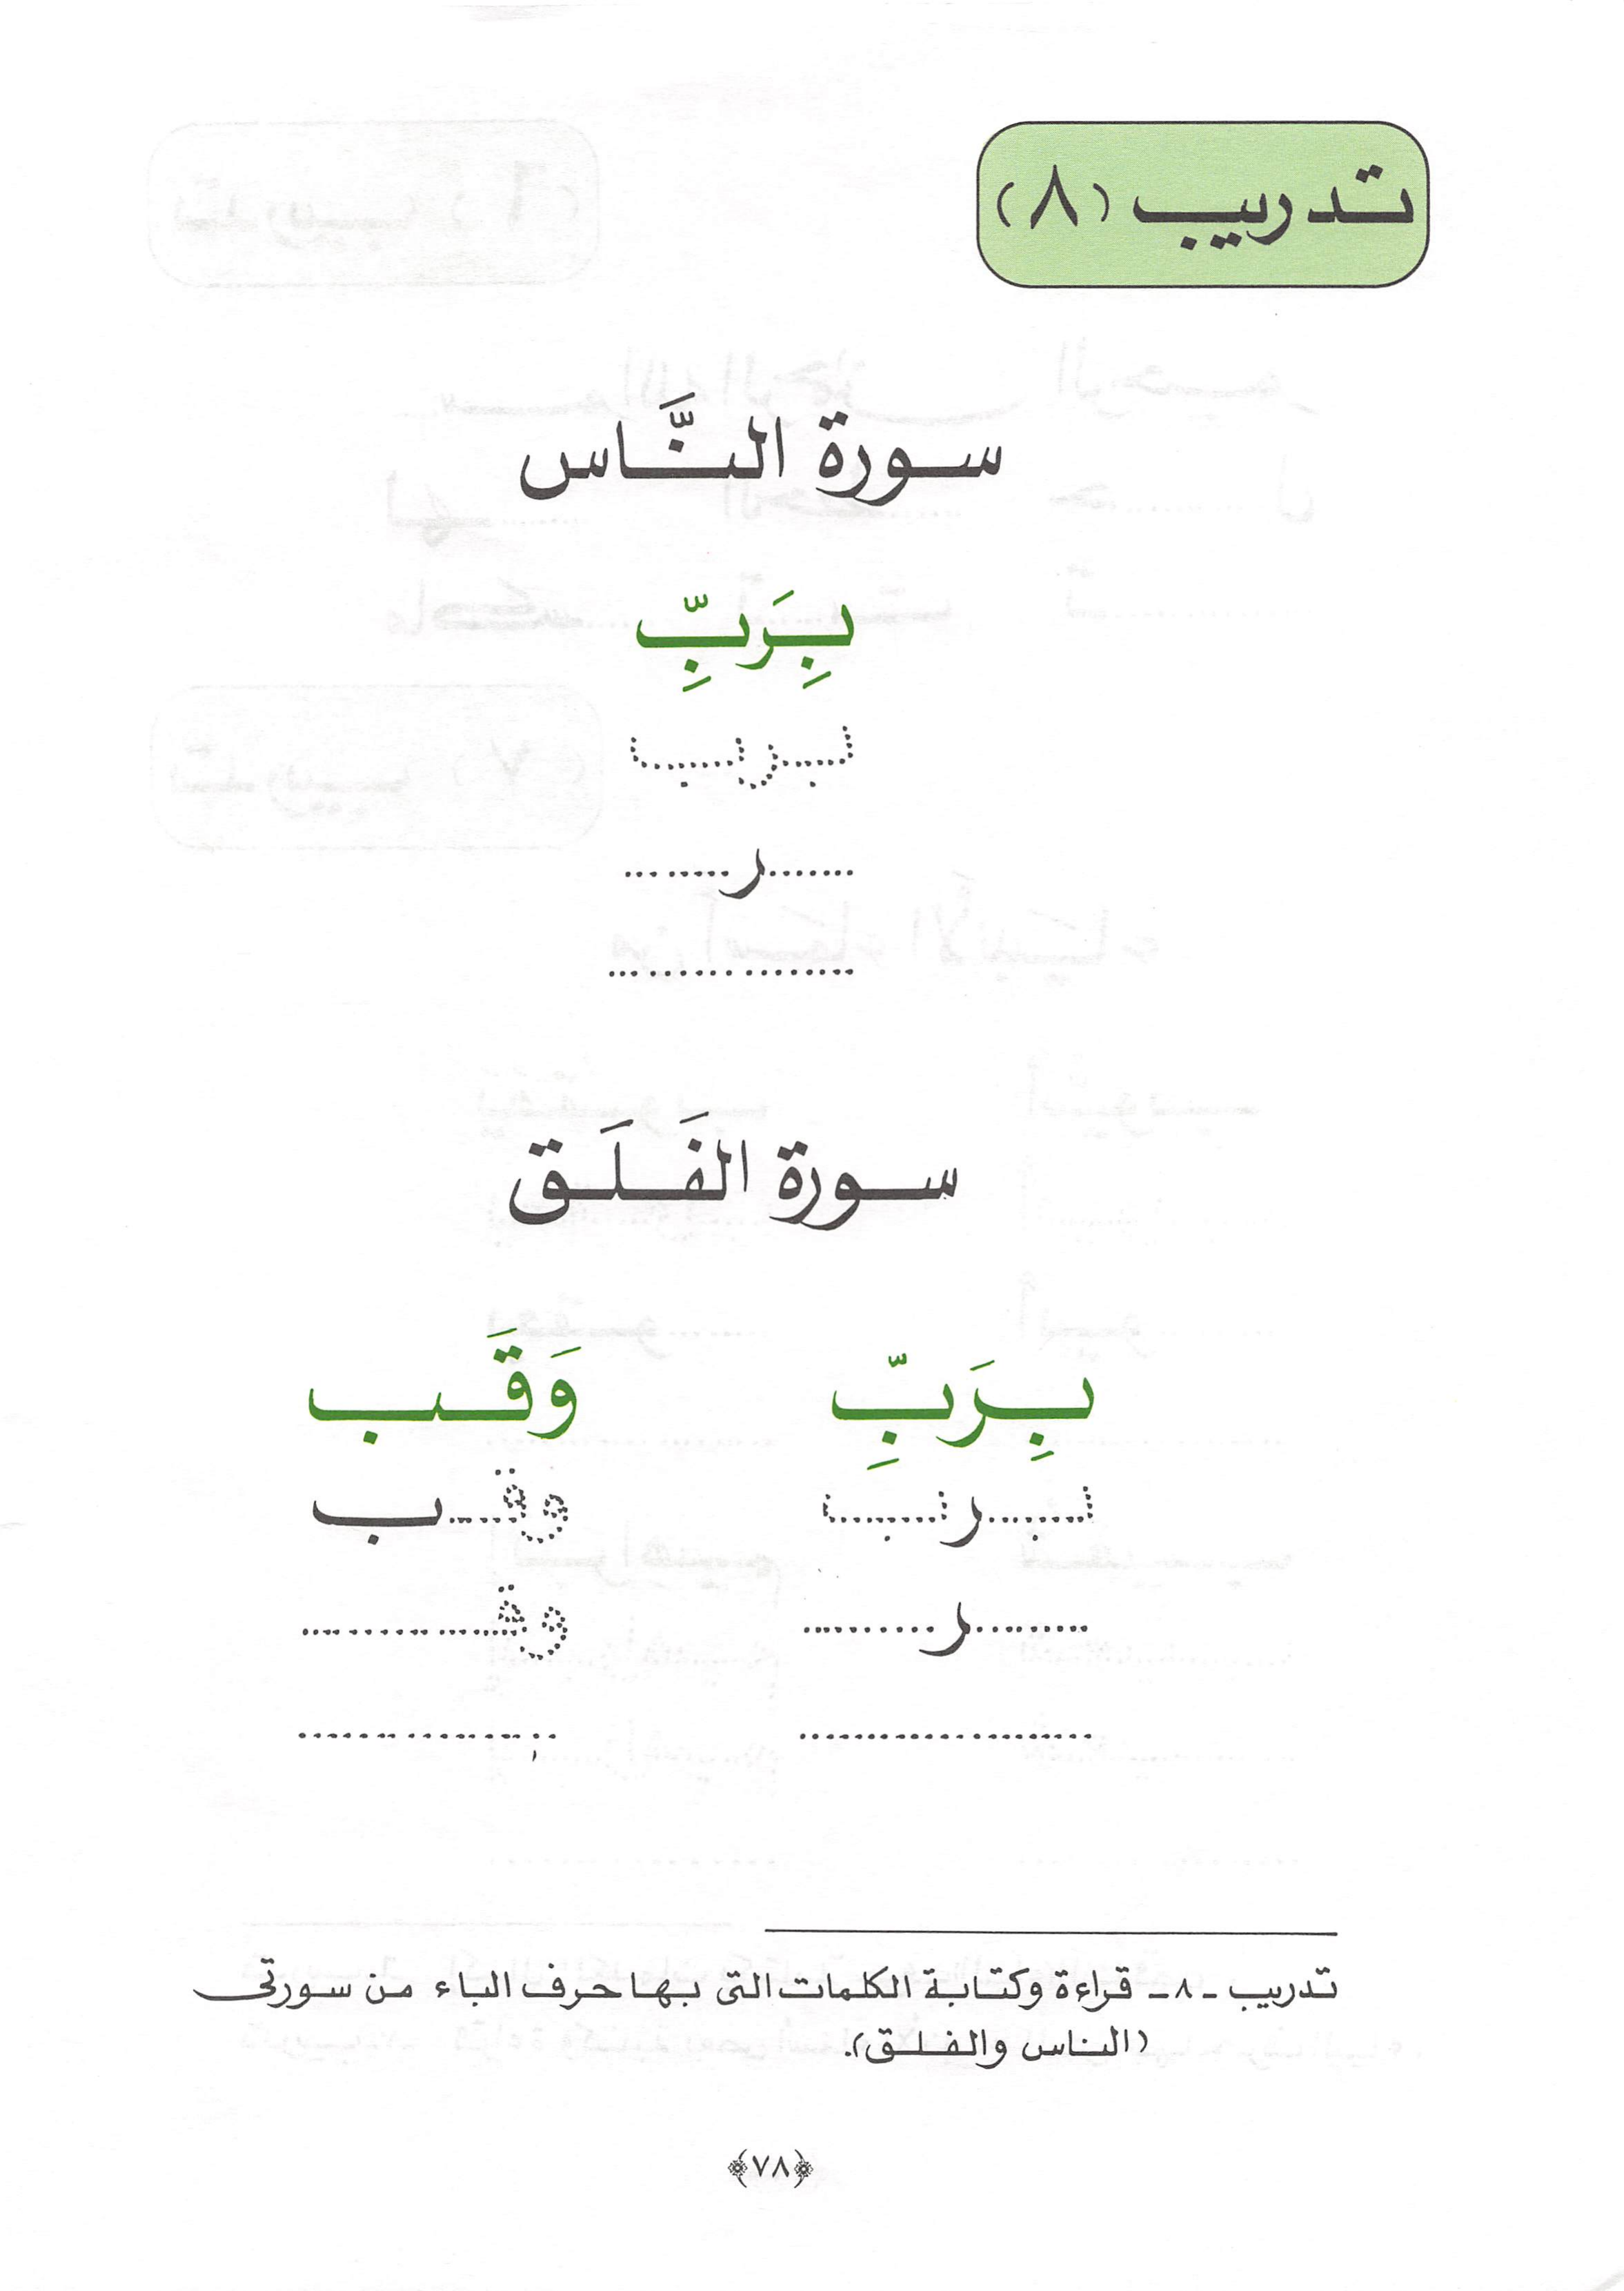 تدريب (٨)
سورة النَّاس
بِرَبِّ
برب
.......ر.........
..................
سورة الفَلَق
بِرَبِّ وَقَب
برب وقب
.........ر.......... وقـ..............
..................... ...................
تدريب -٨- قراءة وكتابة الكلمات التى بها حرف الباء من سورتى
(الناس والفلق).
﴿٧٨﴾